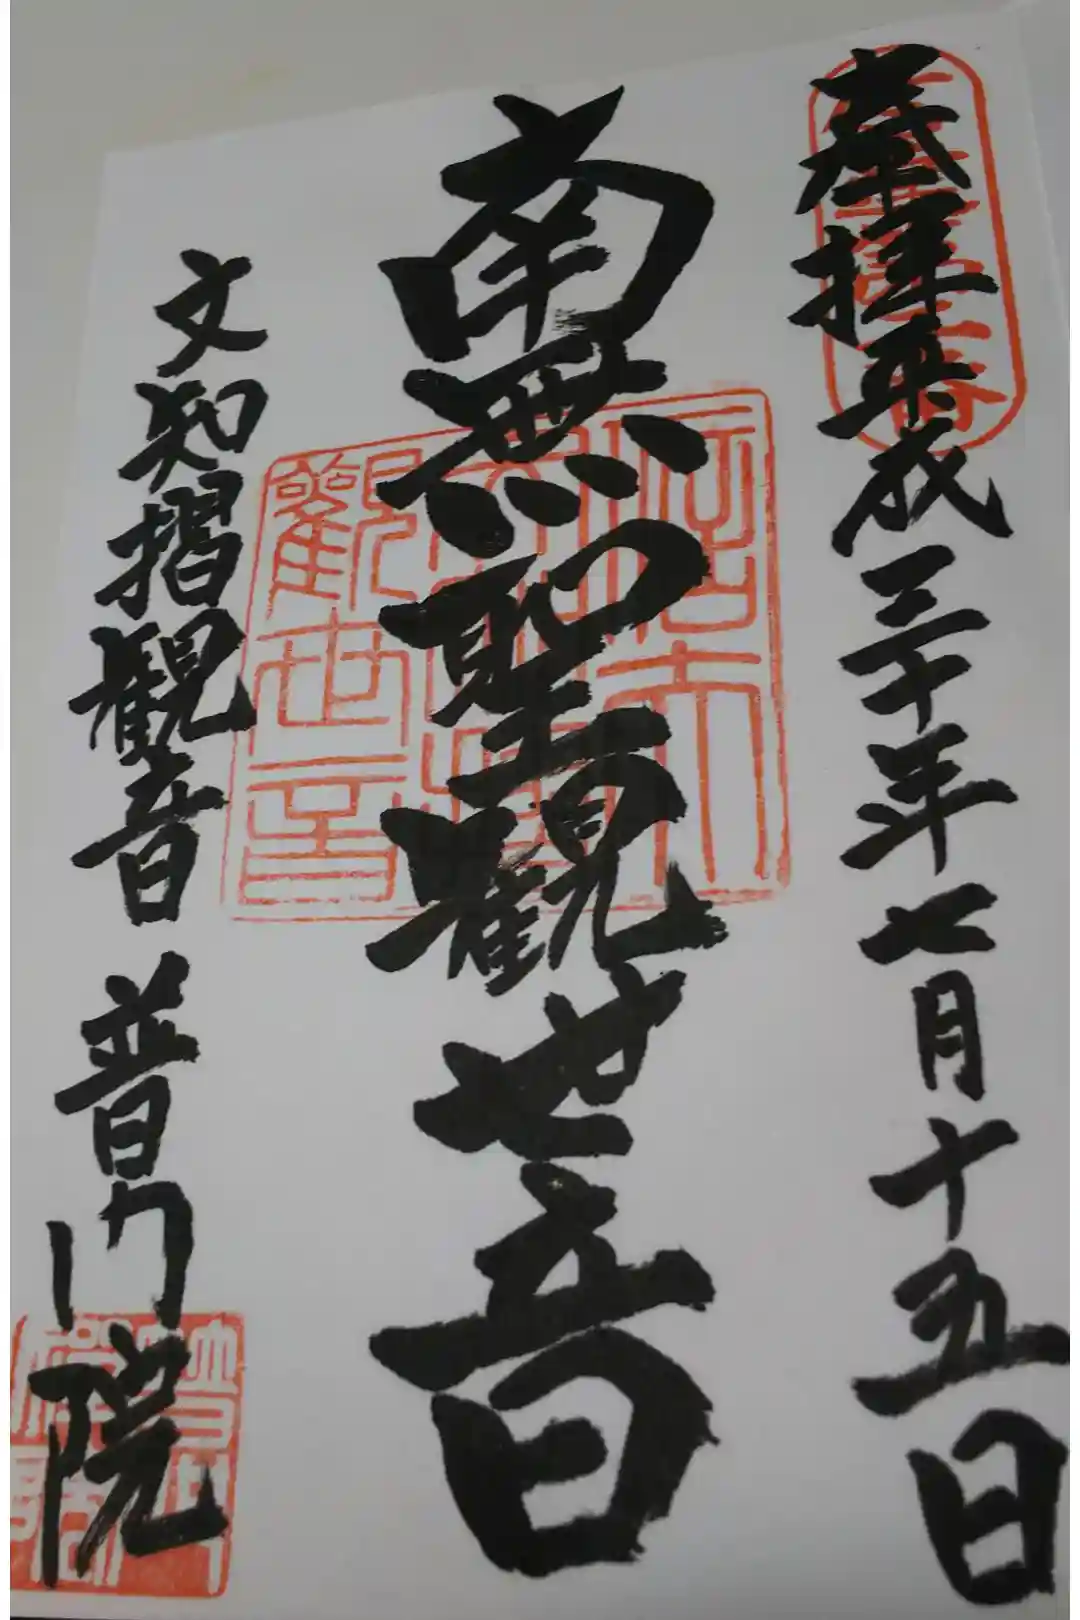 奉拝平成三十年七月十五日
南無聖観世音
文知摺観音 普門院
観世音